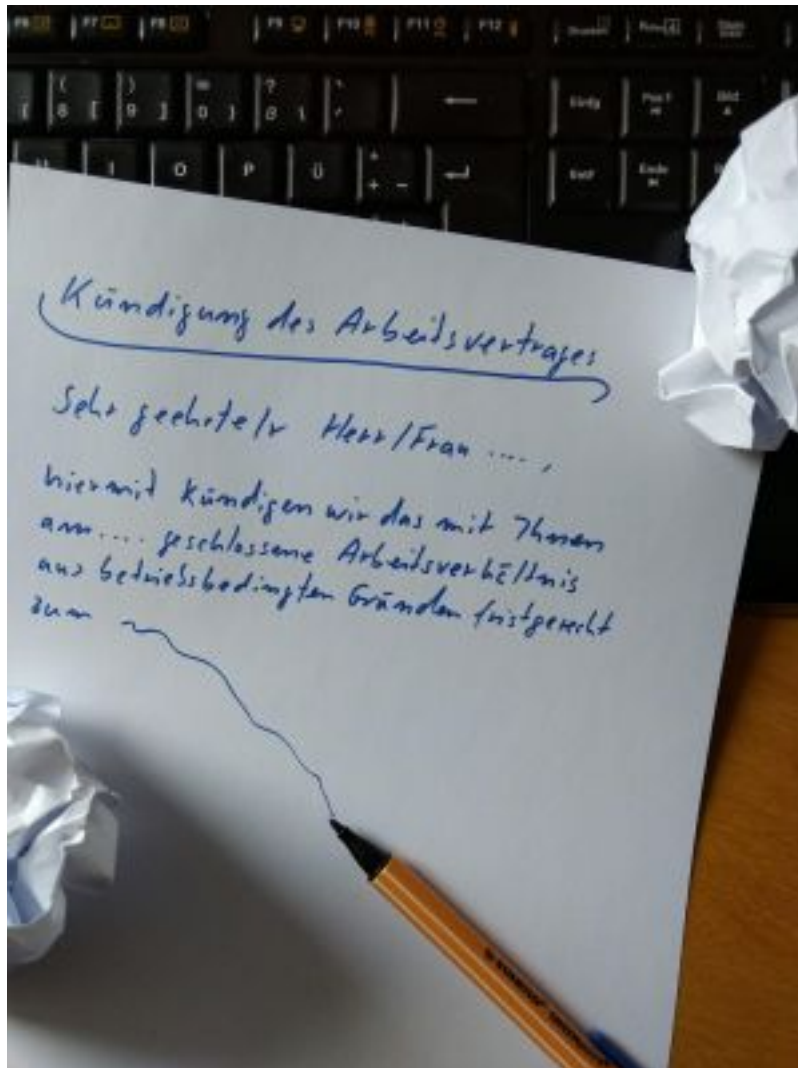 F7
F8
F9
F10
F11
F12
( 8 [
) 9 ]
= 0 }
? ß \
Einfg
Pos 1
Bild
I
O
P
Ü
* + ~
Entf
Ende
Kündigung des Arbeitsvertrages
Sehr geehrte/r Herr/Frau ....,
hiermit kündigen wir das mit Ihnen
am .... geschlossene Arbeitsverhältnis
aus betriebsbedingten Gründen fristgerecht
zum